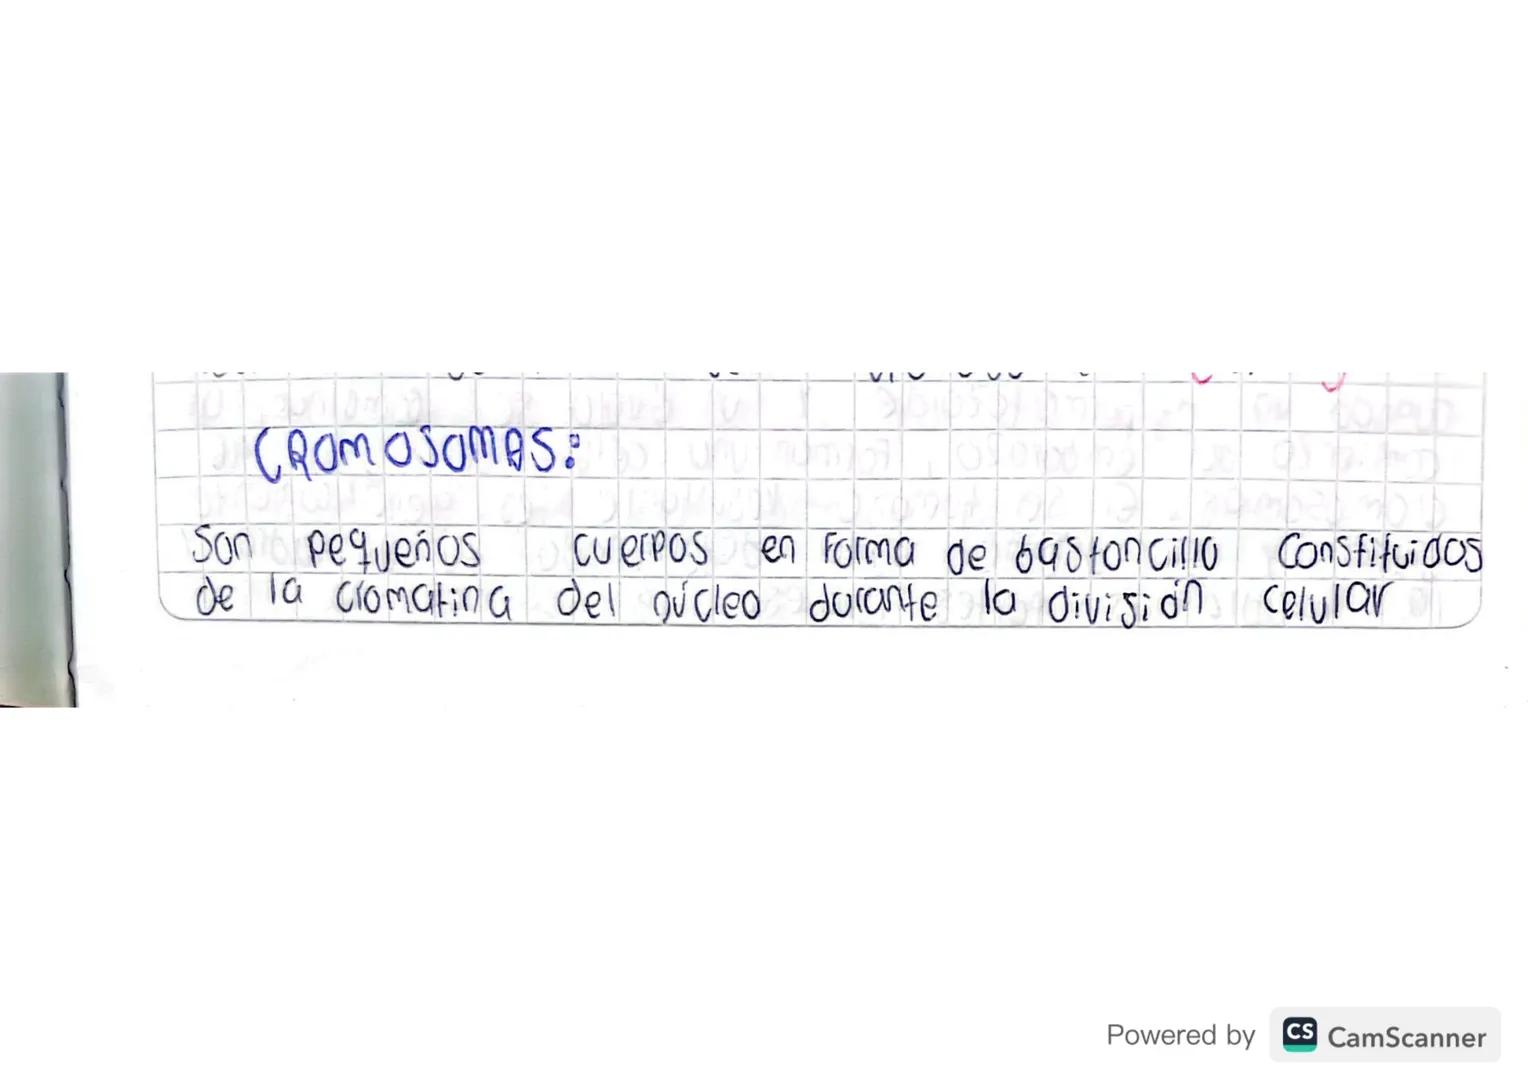 CROMOSOMAS:
Son pequeños cuerpos en forma de bastoncillo constituidos
de la cromatina del núcleo durante la división celular
Powered by CS CamScanner